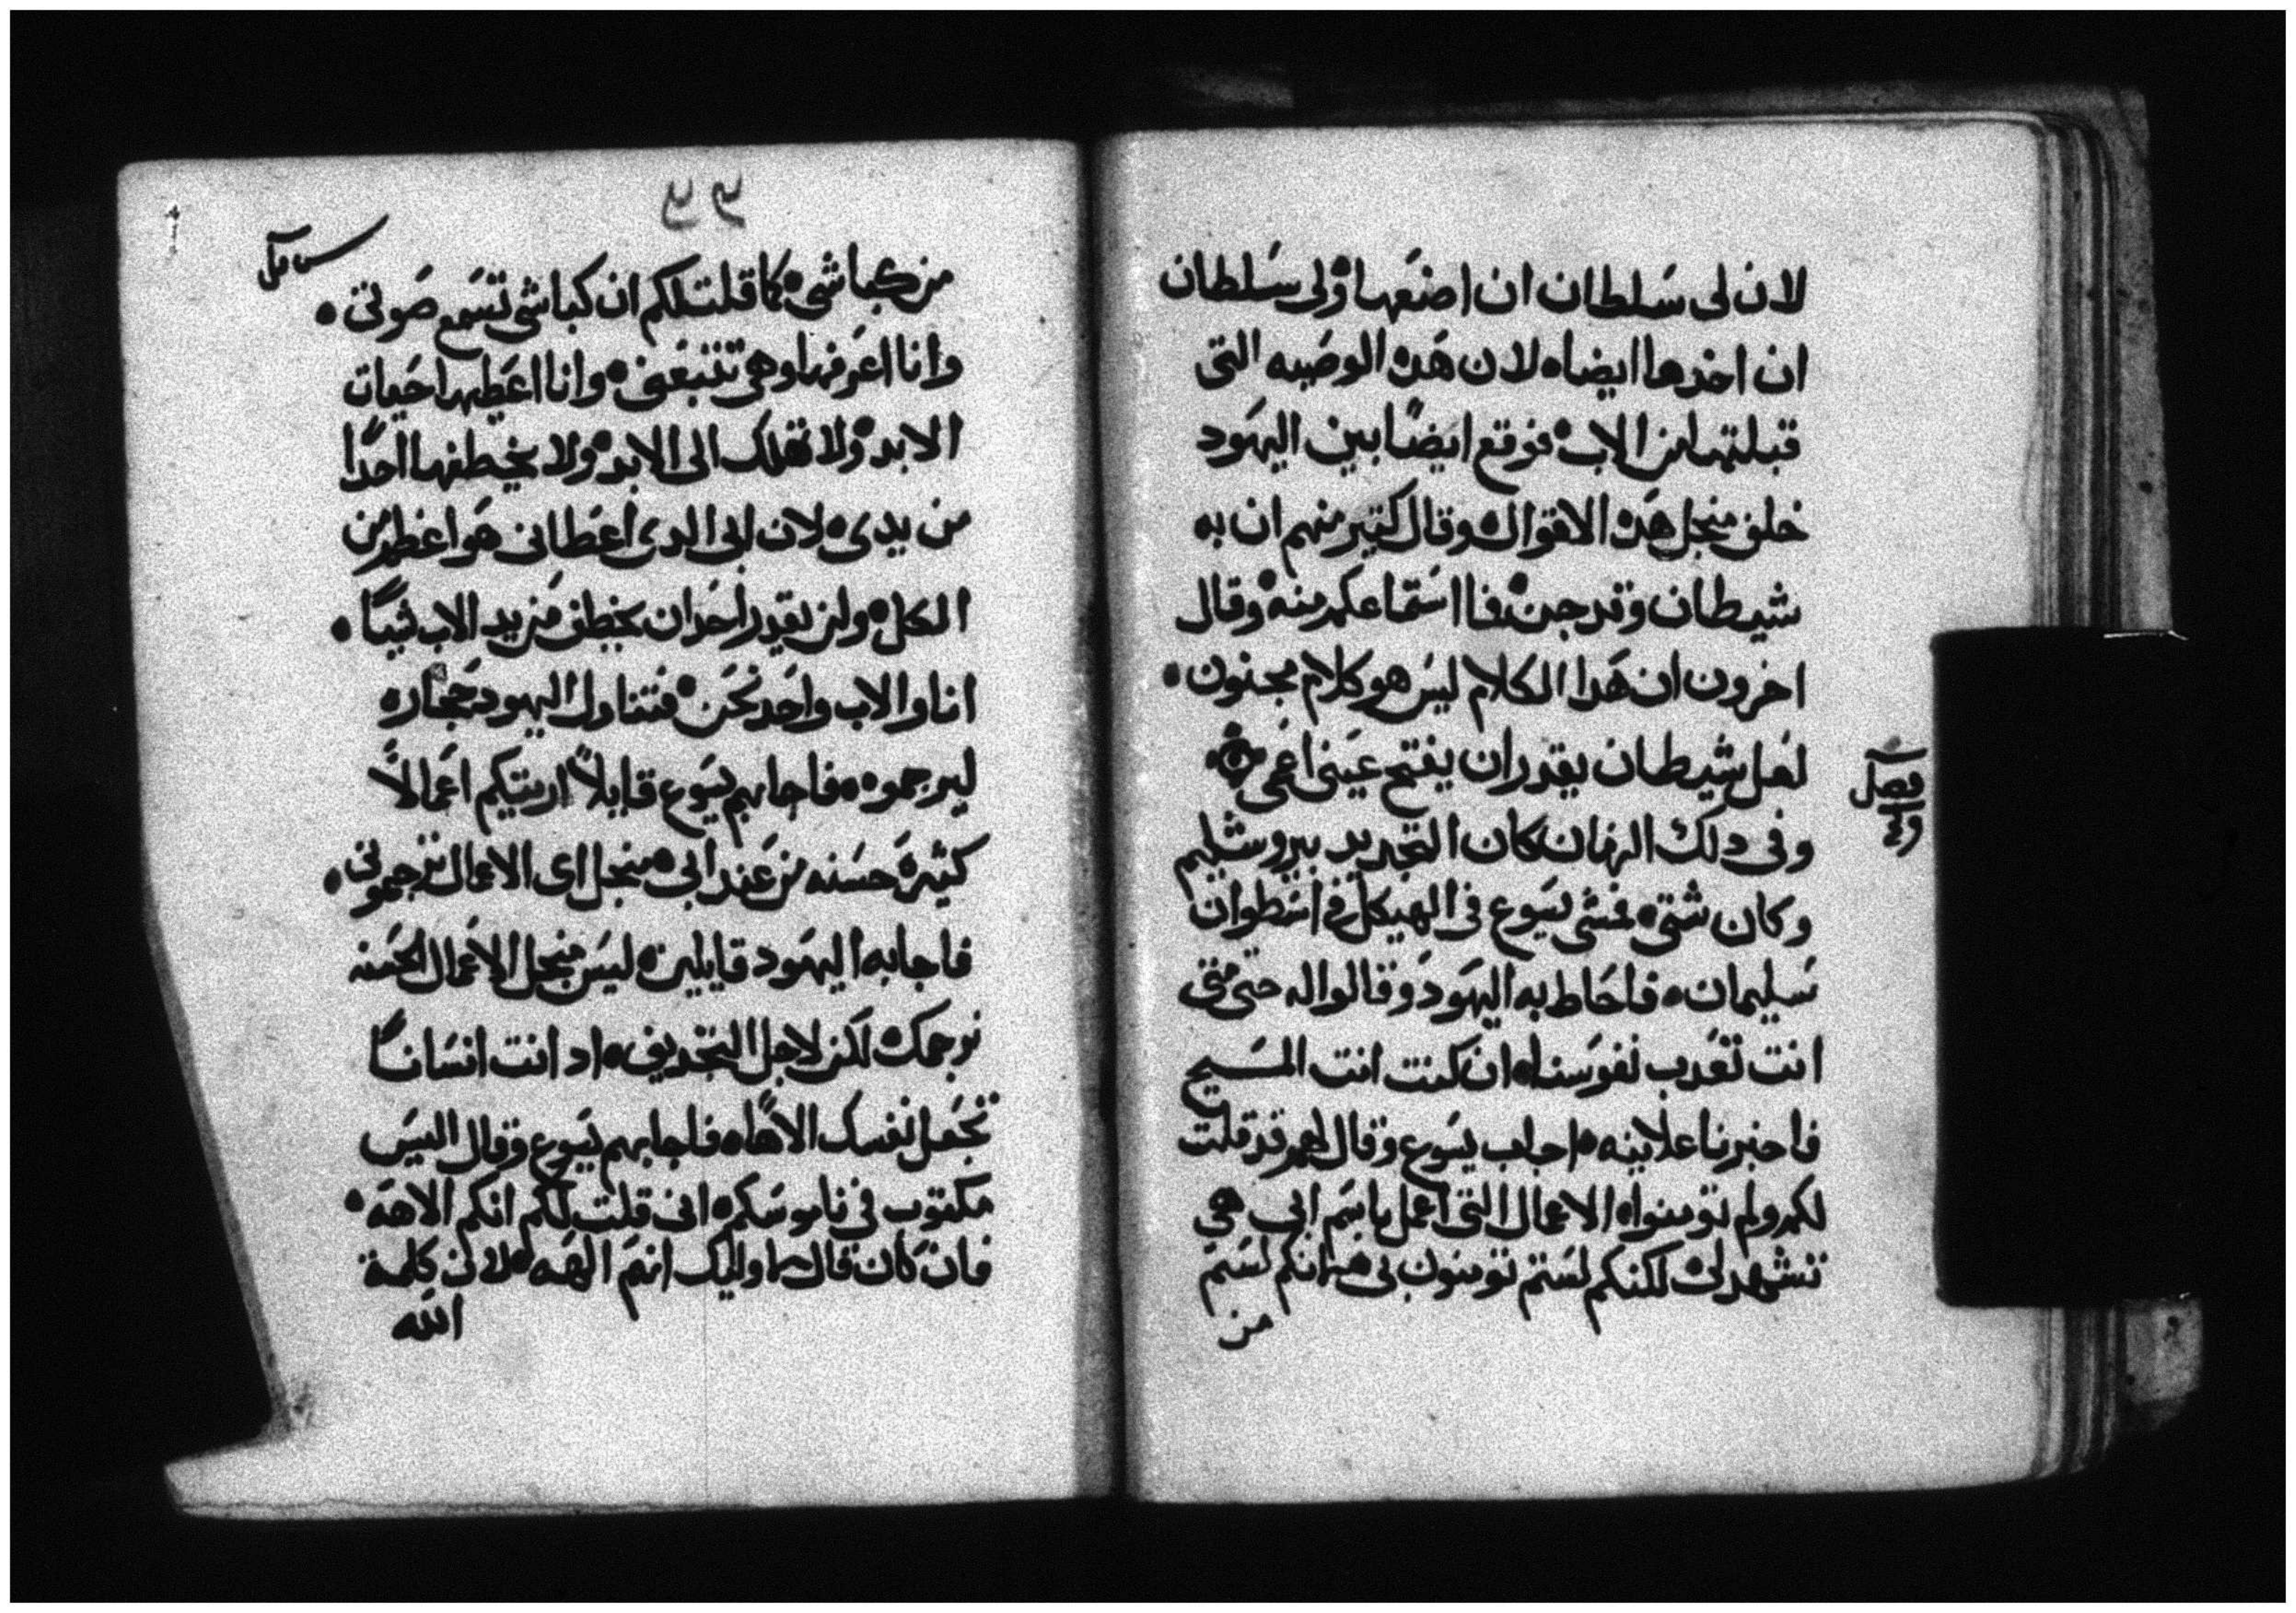 لان لى سَلطان ان اصنعَها ولى سَلطان
ان اخدها ايضاه لان هَده الوصَيه التى
قبلتها من الاب فوقع ايضًا بين اليهَود
خلف منجل هَده الاقوال وقال كتير منهم ان به
شيطان وقد جن فما استماعكم منه وقال
اخرون ان هَدا الكلام ليسَ هو كلام مجنون
لعَل شيطان يقدر ان يفتح عَينى اعَمى
فصل
وفى دلك الزمان كان التجديد بيروشليم
وكان شتى فمشى يسَوع فى الهيكل فى اسَطوان
سَليمان فاحَاط به اليهَود وقالوا له حتى متى
انت تعَدب نفوسَنا ان كنت انت المسَيح
فاخبرنا علانيه اجاب يسَوع وقال لهم قد قلت
لكم ولم تومنوا الاعمال التى اعمل باسَم ابى هى
تشهد لى لكنكم لسَتم تومنون بى لانكم لسَتم
من
من كباشى كما قلت لكم ان كباشى تسَمع صَوتى
وانا اعَرفها وهى تتبعَنى وانا اعَطيها حَيات
الابد ولا تهلك الى الابد ولا يخطفها احدًا
من يدى لان ابى الدى اعَطانى هَو اعَظم من
الكل ولن يقدر احَد ان يخطف من يد الاب شيًا
انا والاب واحَد نحَن فتناول اليهود حَجاره
ليرجموه فاجابهم يسَوع قايلاً اريتكم اعَمالاً
كثيرة حسَنه من عَند ابى منجل اى الاعمال ترجمونى
فاجابه اليهَود قايلين ليسَ منجل الاعَمال الحَسنه
نرجمك لكن لاجل التجديف اد انت انسَانًا
تجعَل نفسك الاهًا فاجابهم يسَوع وقال اليسَ
مكتوب فى ناموسَكم انى قلت لكم انكم الاهَه
فان كان قال لاوليك انتم الهَه لان كلمة
الله